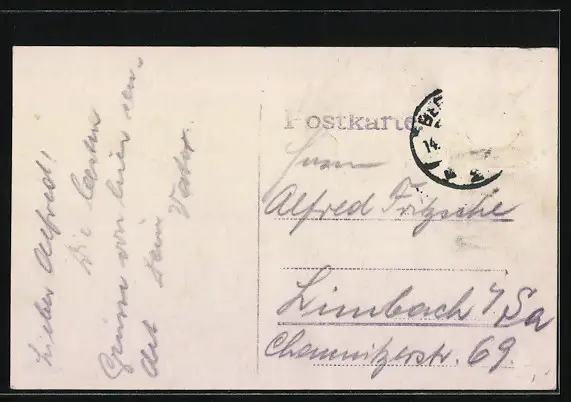 Lieber Alfred!
Die besten
Grüsse von hier sen-
det Dein Vater.
Postkarte
Herrn
Alfred Fritzsche
Limbach i/Sa
Chemnitzerstr. 69.
14.